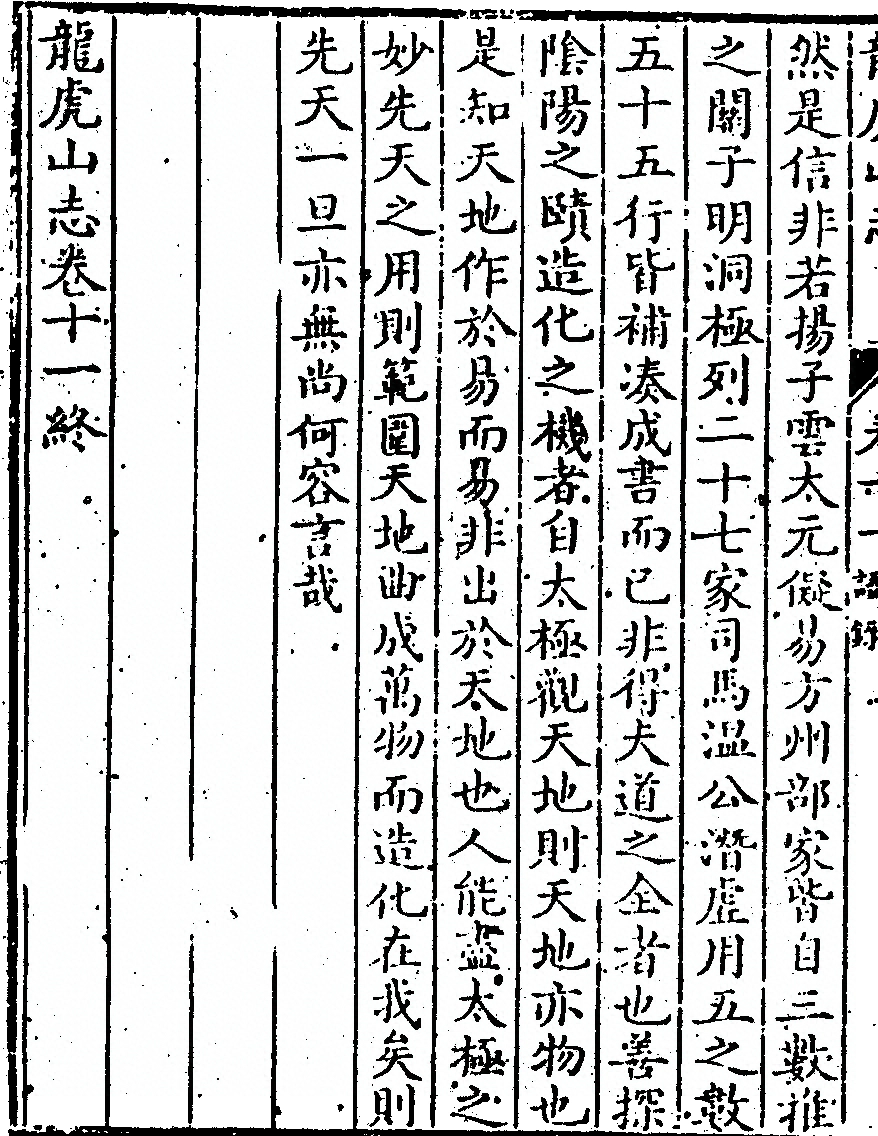 然是信非若揚子雲太元儗易方州部家皆自三數推
之關子明洞極列二十七家司馬溫公潛虛用五之數
五十五行皆補湊成書而已非得夫道之全者也善探
陰陽之賾造化之機者自太極觀天地則天地亦物也
是知天地作於易而易非出於天地也人能盡太極之
妙先天之用則範圍天地曲成萬物而造化在我矣則
先天一旦亦無尚何容言哉
龍虎山志卷十一終